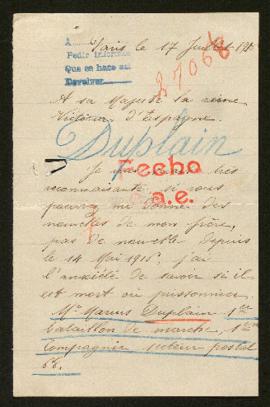 Paris le 17 Juillet 191
A
Pedir informes
Que se hace en
Devolver
27068
A sa Majesté la reine
Victoria d'Espagne.
Duplain
Je vous serais très
reconnaissante si vous
pouvez me donner des
nouvelles de mon frère,
pas de nouvelle depuis
le 14 Mai 1915. j'ai
l'anxiété de savoir s'il
est mort ou prisonnier.
Fecho
a.e.
Mr Marius Duplain 1er
bataillon de marche, 1ère
Compagnie secteur postal
56.